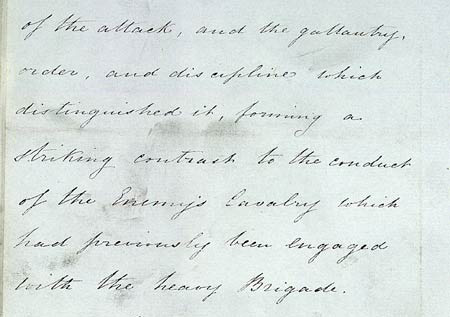 of the attack, and the gallantry,
order, and discipline which
distinguished it, forming a
striking contrast to the conduct
of the Enemy's Cavalry which
had previously been engaged
with the heavy Brigade.